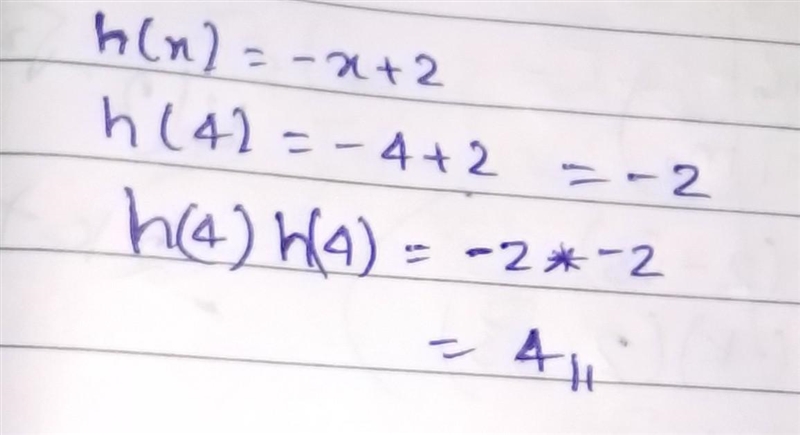 h(x) = -x+2
h(4) = -4+2 = -2
h(4) h(4) = -2*-2
= 4 //